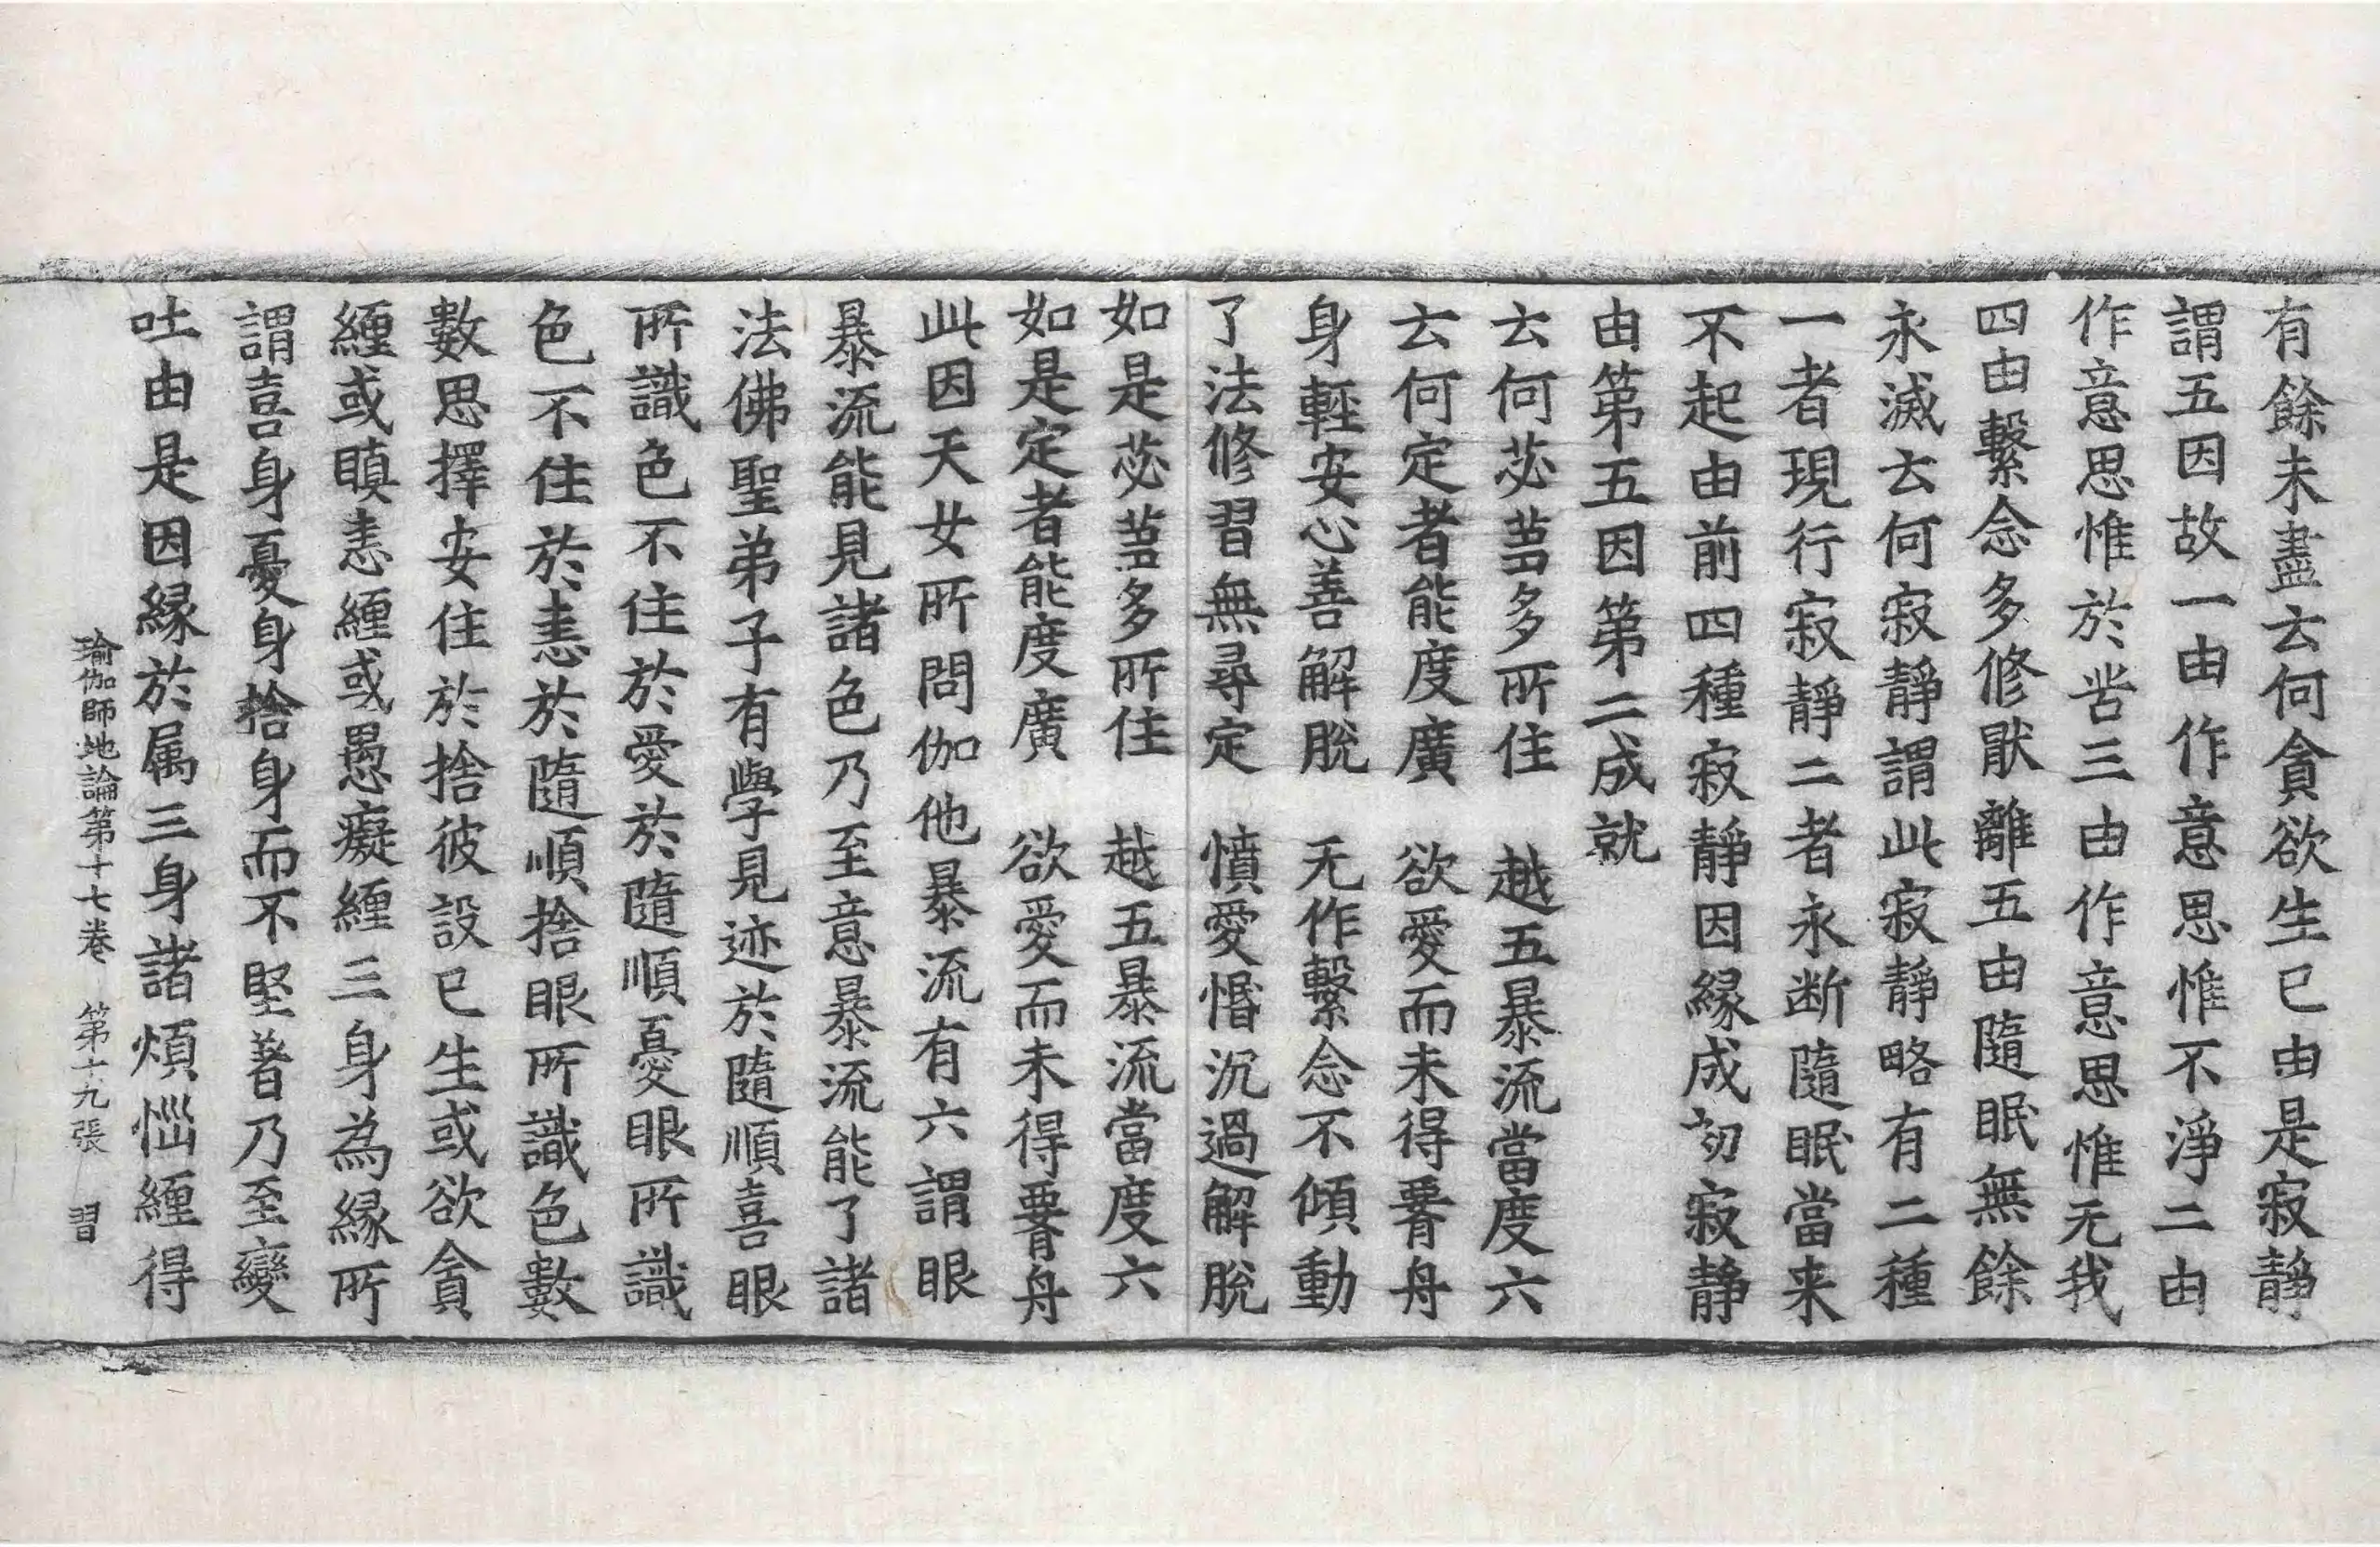 有餘未盡去何貪欲生已由是寂靜
謂五因故一由作意思惟不淨二由
作意思惟於苦三由作意思惟无我
四由繫念多修猒離五由隨眠無餘
永滅去何寂靜謂此寂靜略有二種
一者現行寂靜二者永断隨眠當来
不起由前四種寂靜因緣成初寂靜
由第五因第二成就
去何苾蒭多所住　越五暴流當度六
去何定者能度廣　欲愛而未得𦝫舟
身輕安心善解脫　无作繫念不傾動
了法修習無尋定　憤愛惛沉過解脫
如是苾蒭多所住　越五暴流當度六
如是定者能度廣　欲愛而未得𦝫舟
此因天女所問伽他暴流有六謂眼
暴流能見諸色乃至意暴流能了諸
法佛聖弟子有學見迹於隨順喜眼
所識色不住於愛於隨順憂眼所識
色不住於恚於隨順捨眼所識色數
數思擇安住於捨彼設已生或欲貪
纏或瞋恚纏或愚癡纏三身為緣所
謂喜身憂身捨身而不堅著乃至變
吐由是因緣於属三身諸煩惱纏得
瑜伽師地論第十七卷　第十九張　習